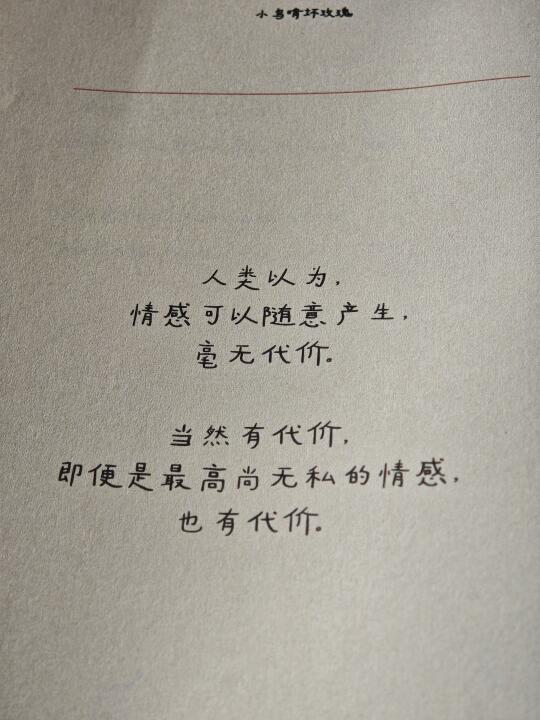 小鸟啃坏玫瑰
人类以为，
情感可以随意产生，
毫无代价。
当然有代价，
即便是最高尚无私的情感，
也有代价。